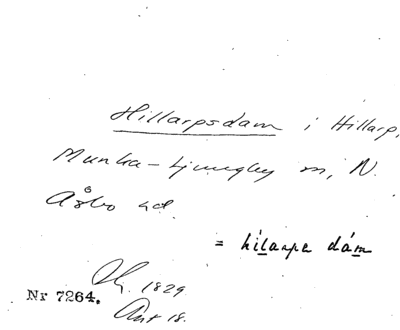 Hillarpsdam i Hillarp,
Munka-Ljungby sn, N.
Åsbo hd.
= hilarpa dám
1829
Nr 7264.
18.